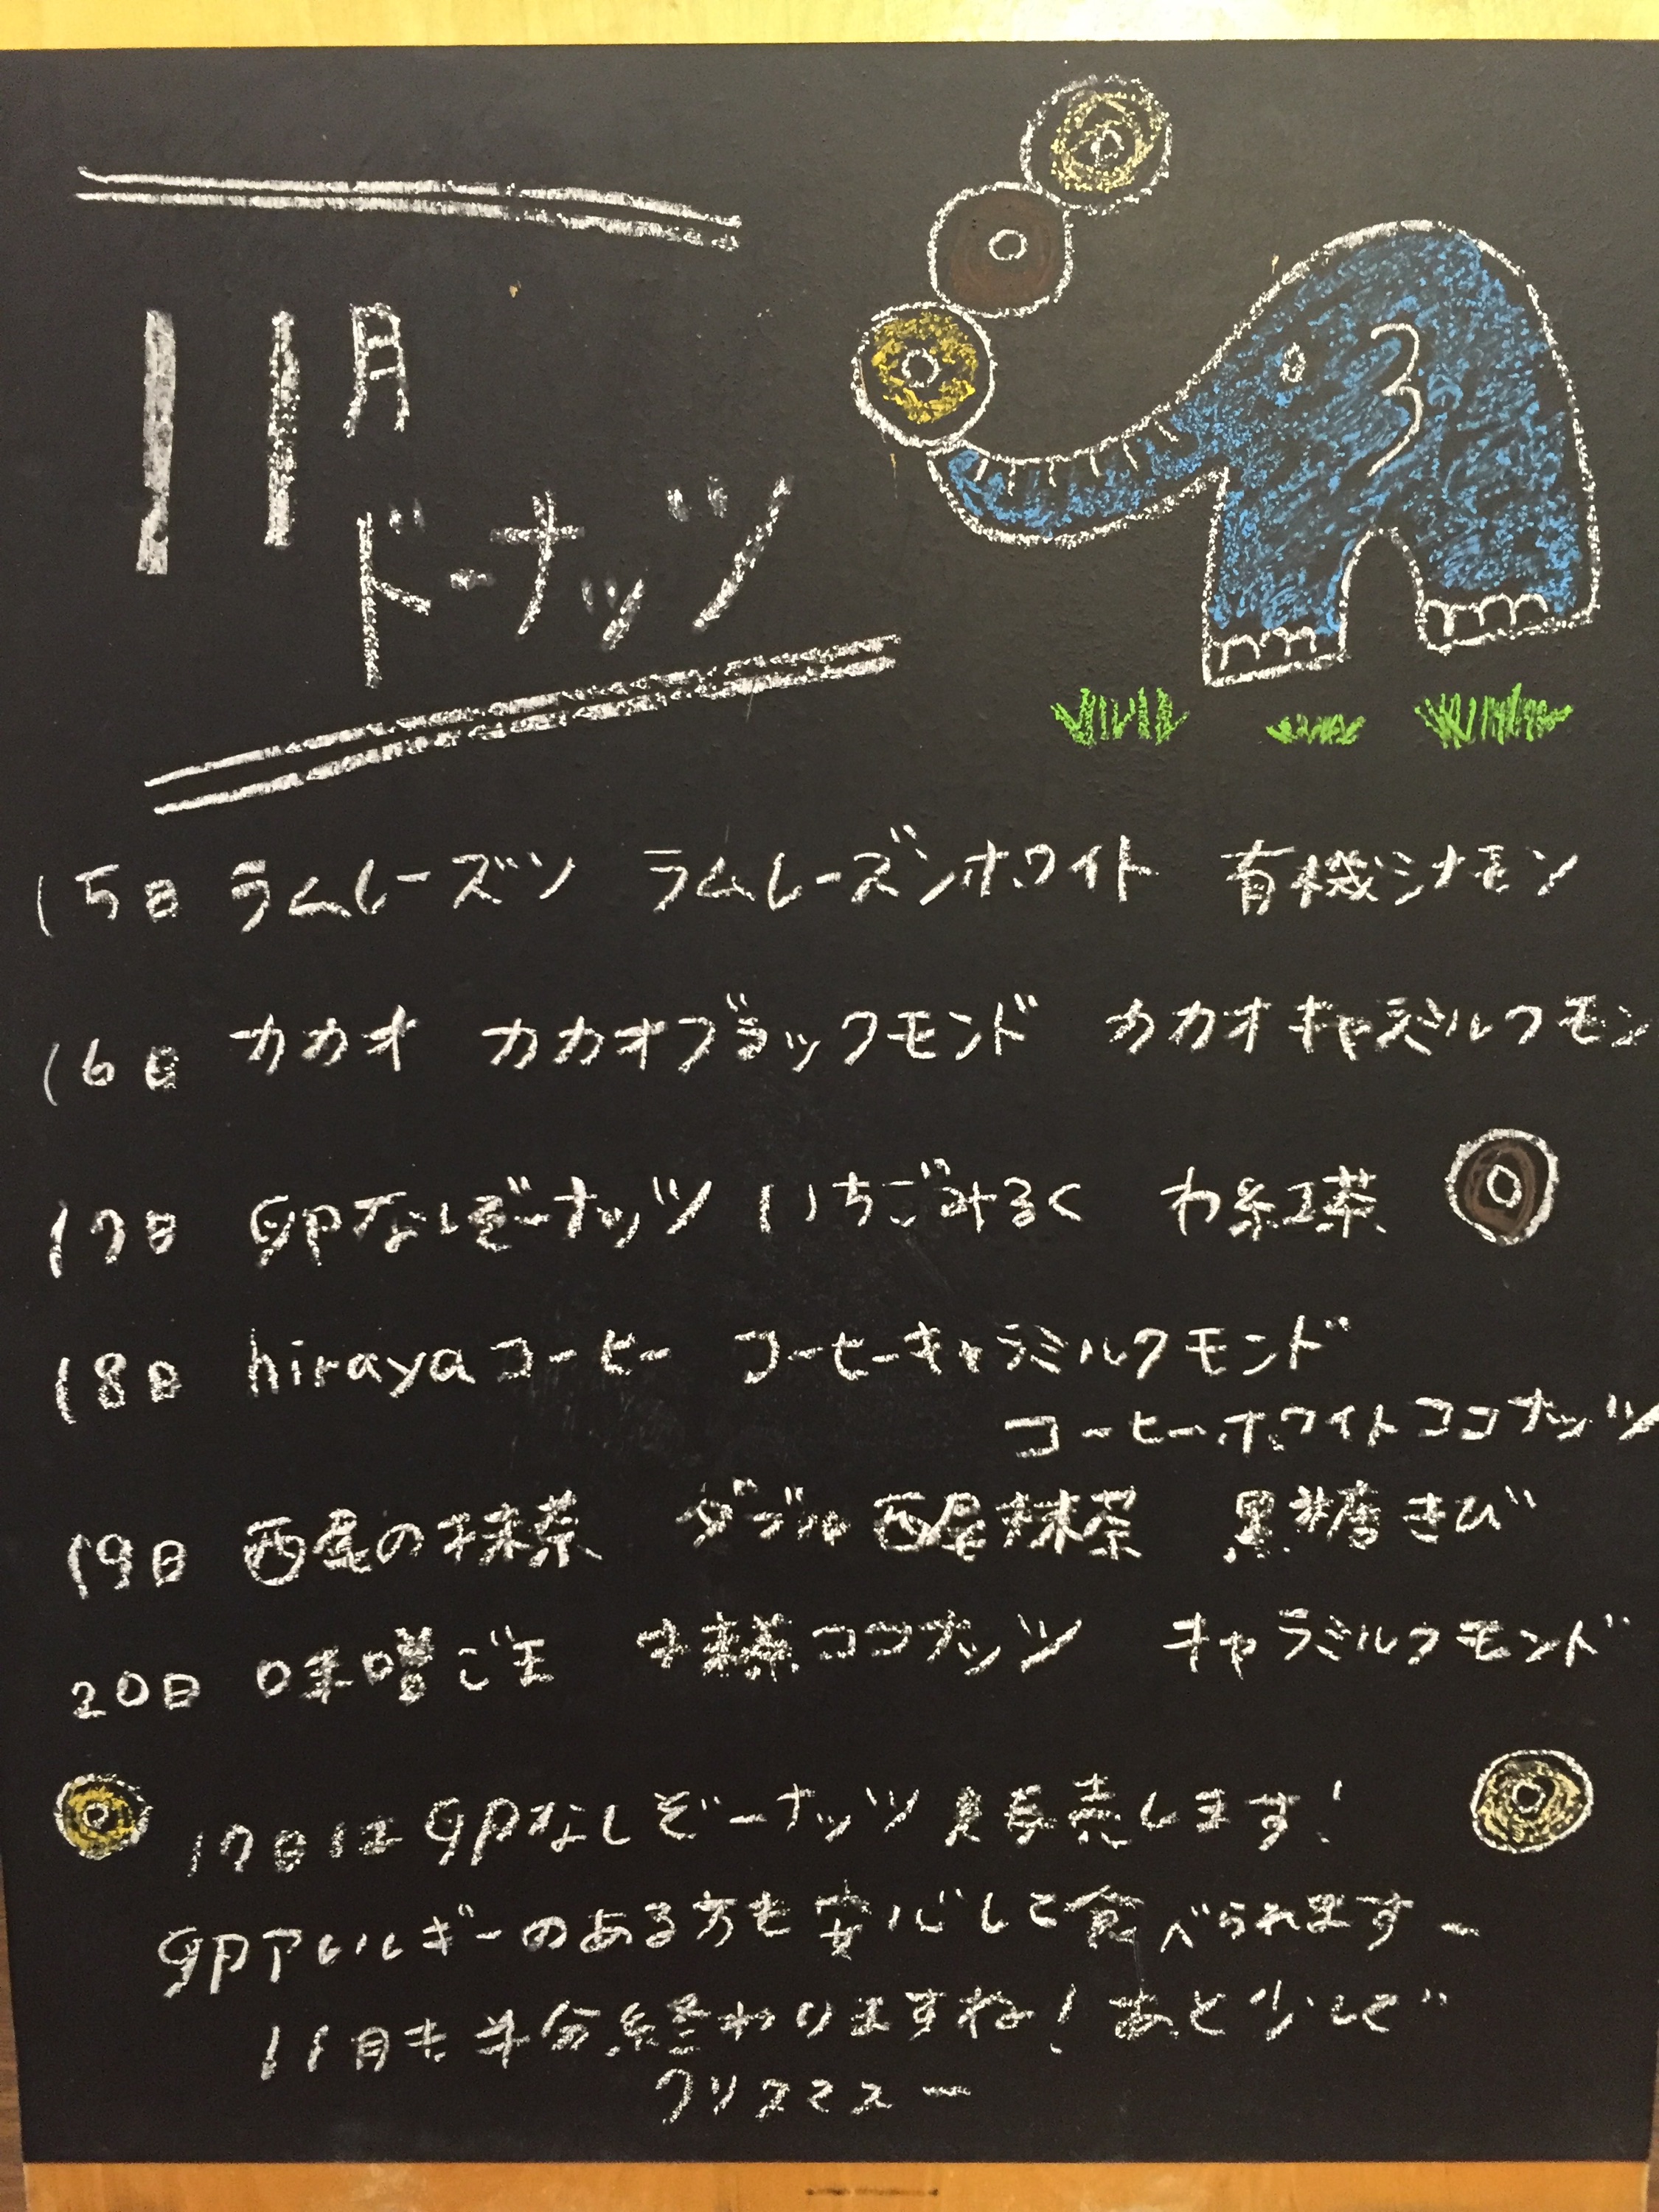 11月
ドーナッツ
15日 ラムレーズン ラムレーズンホワイト 有機シナモン
16日 カカオ カカオブラックモンド カカオキャラミルクモン
17日 卵なしぞーナッツ いちごみるく 和紅茶
18日 hirayaコーヒー コーヒーキャラミルクモンド
コーヒーホワイトココナッツ
19日 西尾の抹茶 ダブル西尾抹茶 黒糖きび
20日 味噌ごま 抹茶ココナッツ キャラミルクモンド
17日は卵なしぞーナッツ発売します!
卵アレルギーのある方も安心して食べられますー
11月も半分終わりますね!あと少しで
クリスマスー